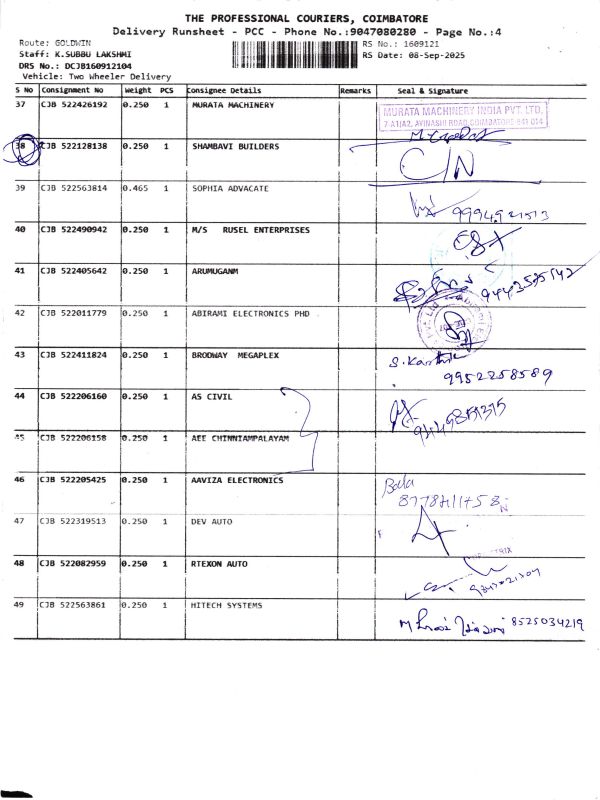 THE PROFESSIONAL COURIERS, COIMBATORE
Delivery Runsheet - PCC - Phone No.:9047080280 - Page No.:4
Route: GOLDWIN
RS No.: 1609121
Staff: K.SUBBU LAKSHMI
RS Date: 08-Sep-2025
DRS No.: DCJB160912104
Vehicle: Two Wheeler Delivery
S No Consignment No Weight PCS Consignee Details Remarks Seal & Signature
37 CJB 522426192 0.250 1 MURATA MACHINERY
MURATA MACHINERY INDIA PVT. LTD.
7-A1(A2, AVINASHI ROAD, COIMBATORE-641 014
38 CJB 522128138 0.250 1 SHAMBAVI BUILDERS C/N
39 CJB 522563814 0.465 1 SOPHIA ADVACATE
9994921513
40 CJB 522490942 0.250 1 M/S RUSEL ENTERPRISES
41 CJB 522405642 0.250 1 ARUMUGANM
42 CJB 522011779 0.250 1 ABIRAMI ELECTRONICS PHD
43 CJB 522411824 0.250 1 BRODWAY MEGAPLEX S.Karthik
9952258589
44 CJB 522206160 0.250 1 AS CIVIL
45 CJB 522206158 0.250 1 AEE CHINNIAMPALAYAM
46 CJB 522205425 0.250 1 AAVIZA ELECTRONICS Bala
47 CJB 522319513 0.250 1 DEV AUTO
48 CJB 522082959 0.250 1 RTEXON AUTO
49 CJB 522563861 0.250 1 HITECH SYSTEMS
8525034219